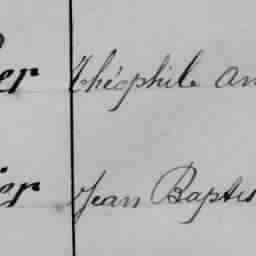 er Théophile An
ier Jean Baptis